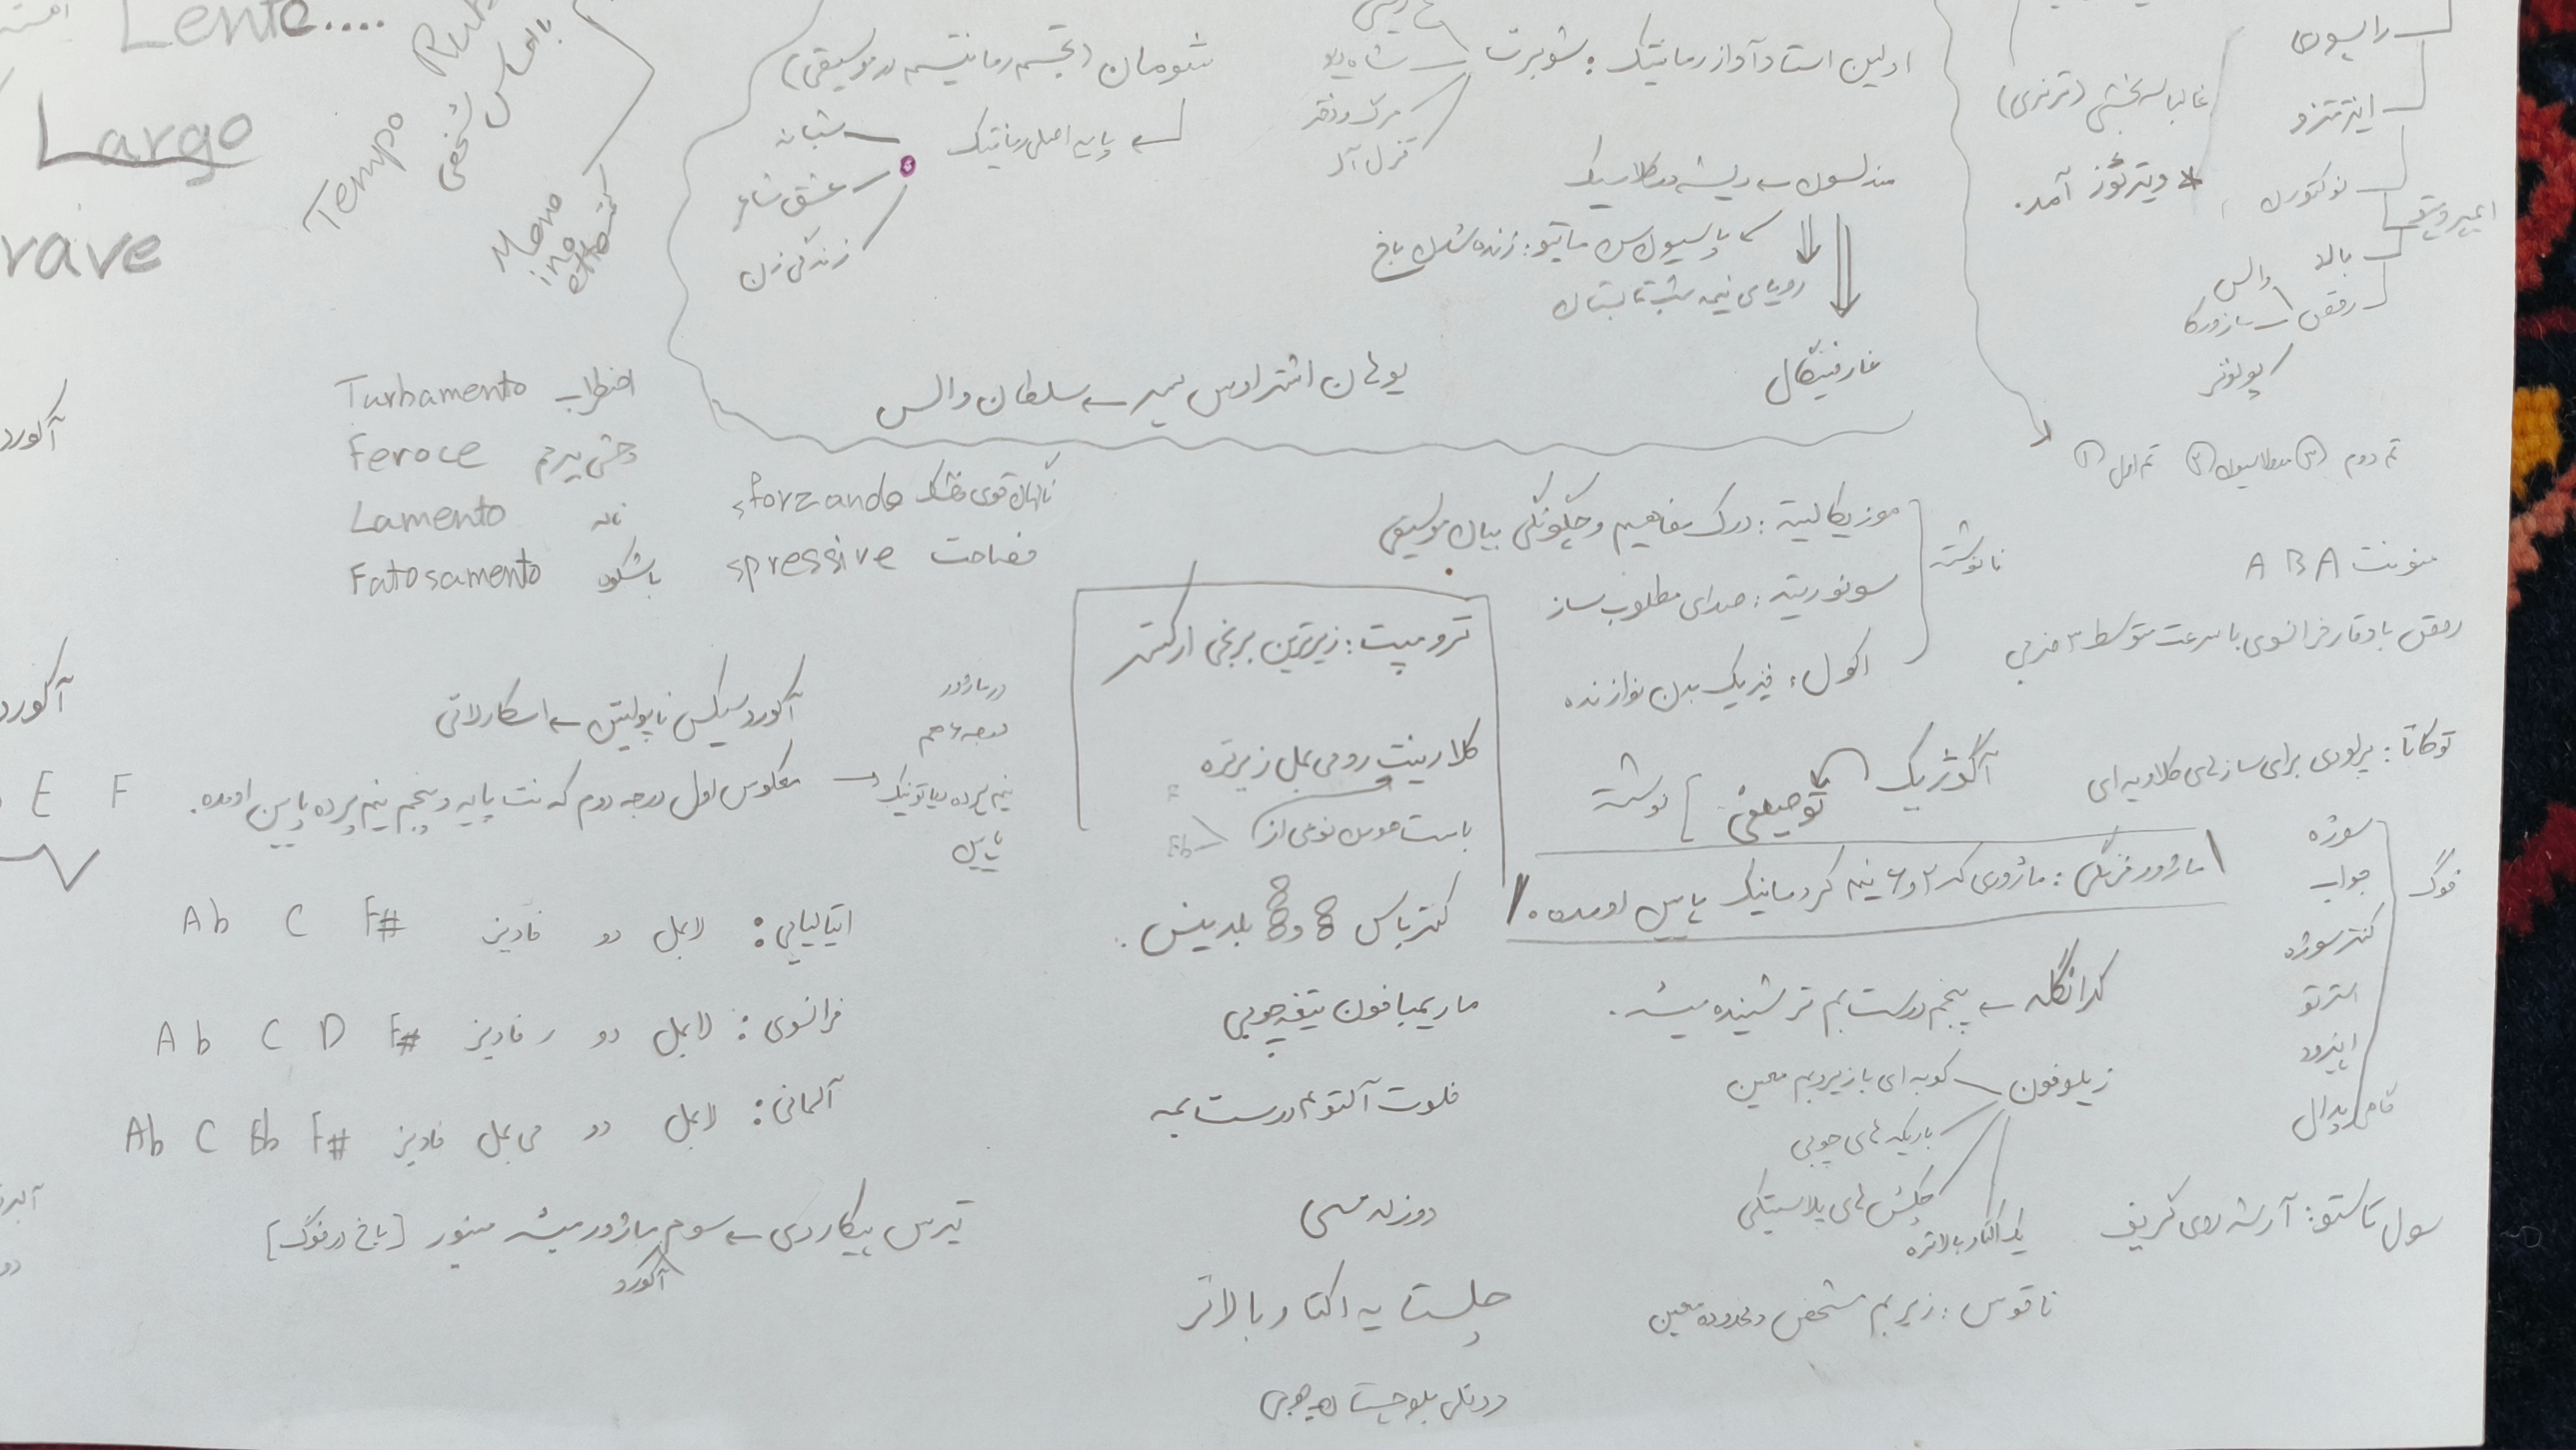 راپسودی
اینترمتزو
نوکتورن
بالاد
رقص
والس
مازورکا
پولونز
غالبا سه بخشی (ترنری)
* ویرتئوز آمد.
تم اول ① مدولاسیون ② ③ تم دوم
منوئت A B A
رقص با وقار فرانسوی با سرعت متوسط ۳ ضربی
توکاتا: پرلودی برای سازهای کلاویه ای
فوگ
سوژه
جواب
کنترسوژه
استرتو
اپیزود
پدال
سول تاستو: آرشه روی گریف
اولین استاد آواز رمانتیک: شوبرت
مرگ و دختر
مندلسون ← ریشه در کلاسیک
پاسیون سن ماتیو: زنده شدن باخ
رویای نیمه شب تابستان
غار فینگال
شومان (تجسم رمانتیسم در موسیقی)
پایه اصلی رمانتیک
شبانه
عشق شاعر
زندگی زن
یوهان اشتراوس پسر ← سلطان والس
نانوشته
موزیکالیته: درک مفاهیم و چگونگی بیان موسیقی
سونوریته: صدای مطلوب ساز
اکول: فیزیک بدن نوازنده
آگوژیک
توصیفی
نوشته
ماژور فرنگی: ماژوری که ۲ و ۶ نیم کروماتیک پایین اومده.
کرانگله ← پنجم درست بم تر شنیده میشه.
زیلوفون
کوبه ای با زیر و بم معین
باریکه های چوبی
چکش های پلاستیکی
یک اکتاو بالاتره
ناقوس: زیر و بم مشخص و محدوده معین
ترومپت: زیرترین برنجی ارکستر
کلارینت رو می بمل زیرتره
باست هورن نوعی از
F
Eb
کنترباس 8 و 8 بلدینش.
ماریمبافون تیغه چوبی
فلوت آلتو ۴ درست بمه
دوزله مسی
چلستا یه اکتاو بالاتر
دونلی بلوچستان چوبی
Lente....
Largo
rave
Tempo Rub
با احساس شخصی
Meno
ino
etto
کمتر
Turbamento اضطراب
Feroce وحشی بیرحم
Lamento ناله
Fatosamento باشکوه
sforzando ناگهان قوی و خشک
spressive فصاحت
آکورد سیکس ناپولیتن ← اسکارلاتی
معکوس اول درجه دوم که نت پایه و پنجم نیم پرده پایین اومده.
در ماژور
درجه ۶ هم
نیم پرده دیاتونیک
پایین
آکورد
آکورد
E F
ایتالیایی: لابمل دو فادیز Ab C F#
فرانسوی: لابمل دو ر فادیز Ab C D F#
آلمانی: لابمل دو می بمل فادیز Ab C Eb F#
تیرس پیکاردی ← سوم ماژور میشه مینور [باخ در فوگ]
آکورد